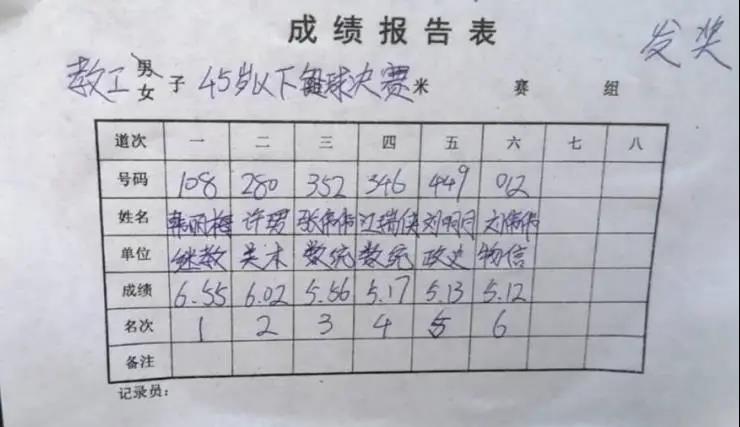 成绩报告表
发奖
教工 男女 子 45岁以下铅球决赛 米 赛 组
道次 一 二 三 四 五 六 七 八
号码 108 280 352 346 449 012
姓名 韩丽梅 许珺 张伟伟 江瑞侠 刘明月 刘伟伟
单位 继教 美术 数统 数统 政史 物信
成绩 6.55 6.02 5.56 5.17 5.13 5.12
名次 1 2 3 4 5 6
备注
记录员: